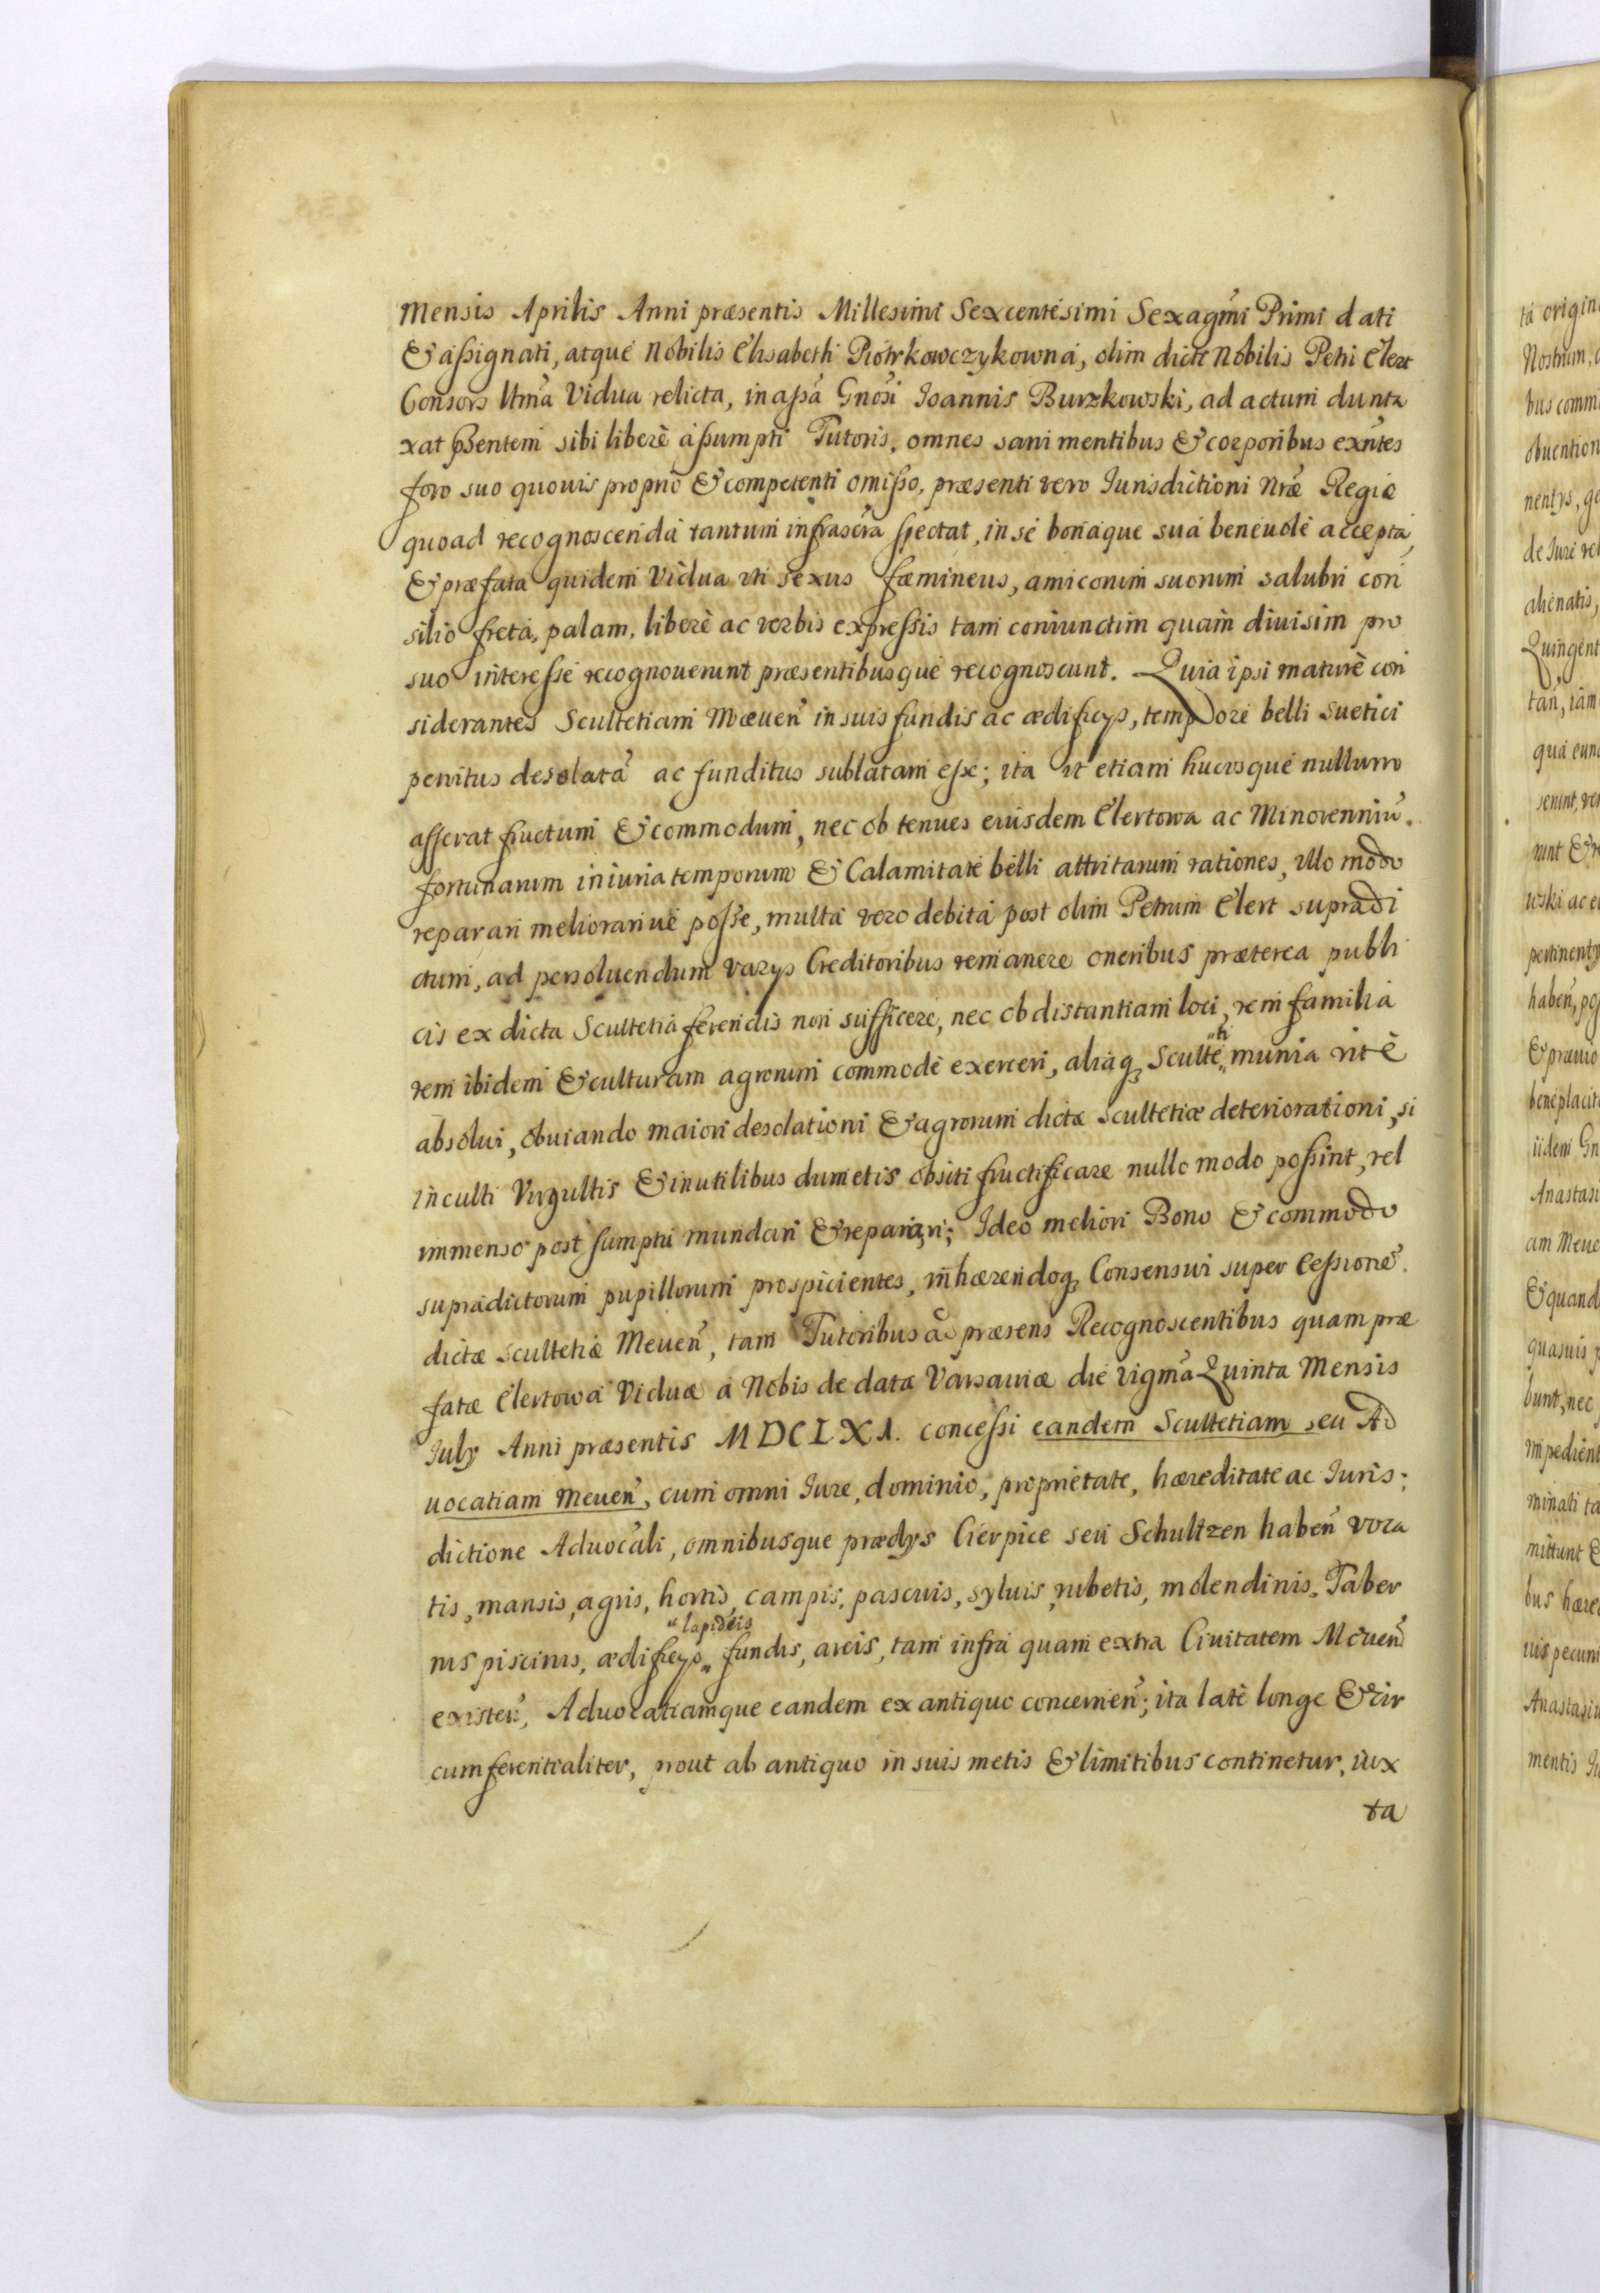 Mensis Aprilis Anni præsentis Millesimi Sexcentesimi Sexagm̃i Primi dati
& aßignati, atque Nobilis Elisabeth Piotrkowczykowna, olim dicti Nobilis Petri Elert
Consors ltm̃a Vidua relicta, in aßa Gnõsi Joannis Burzkowski, ad actum dunta
xat p̃sentem sibi liberè aßumpti Tutoris, omnes sani mentibus & corporibus exñtes
foro suo quouis proprio & competenti omißo, præsenti vero Iurisdictioni Nræ̃ Regiæ
quoad recognoscenda tantum infrascr̃a spectat, in se bonaque sua beneuole accepta,
& præfata quidem Vidua uti sexus fæmineus, amicorum suorum salubri con
silio freta, palam, liberè ac verbis expreßis tam coniunctim quam diuisim pro
suo intereße recognouerunt præsentibusque recognoscunt. Quia ipsi maturè con
siderantes Scultetiam Mæuen̄ in suis fundis ac ædificys, tempore belli suetici
penitus desolatã ac funditus sublatam eße; ita ut etiam hucusque nullum
afferat fructum & commodum, nec ob tenues eiusdem Elertowa ac Minorenniũ
fortunarum iniuria temporum & Calamitate belli attritarum rationes, ullo modo
reparari meliorariue poße, multa vero debita post olim Petrum Elert supradi
ctum, ad persoluendum varys Creditoribus remanere oneribus præterea publi
cis ex dicta Scultetia ferendis non sufficere, nec ob distantiam loci, rem familia
rem ibidem & culturam agrorum commodè exerceri, aliaq; Sculteti munia ritè
absolui, obuiando maiori desolationi & agrorum dictæ Scultetiæ deteriorationi, si
inculti Virgultis & inutilibus dumetis obsiti fructificare nullo modo poßint, vel
immenso post sumptu mundari & reparari; Ideo meliori Bono & commodo
supradictorum pupillorum prospicientes, inhærendoq; Consensui super Ceßionẽ
dictæ Scultetiæ Meuen̄, tam Tutoribus ad præsens Recognoscentibus quam præ
fatæ Elertowa Viduæ a Nobis de data Varsauiæ die vigm̃a Quinta Mensis
July Anni præsentis MDCLXI. conceßi eandem Scultetiam seu Ad
uocatiam Meuen̄, cum omni Iure, dominio, proprietate, hæreditate ac Iuris:
dictione Aduocali, omnibusque prædys Cierpice seu Schultzen haben̄ voca
tis, mansis, agris, hortis, campis, pascuis, syluis, rubetis, molendinis, Taber
nis piscinis, ædificys lapideis fundis, areis, tam infra quam extra Ciuitatem Meuen̄
existen̄, Aduocatiamque eandem ex antiquo concernen̄; ita latè longe & cir
cumferentialiter, prout ab antiquo in suis metis & limitibus continetur, iux
ta